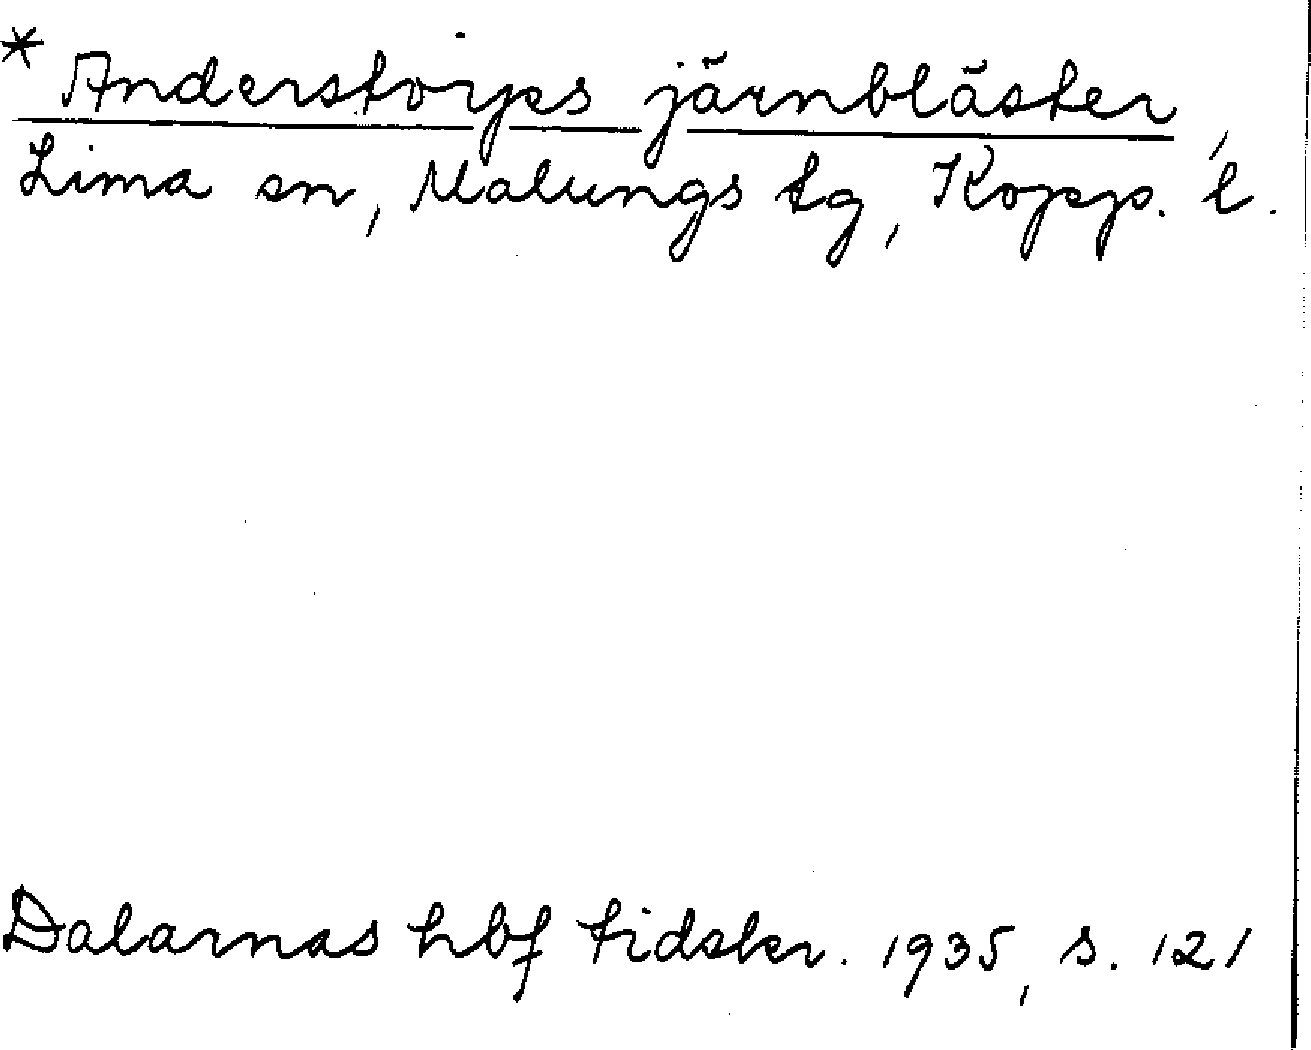 * Anderstorps järnbläster,
Lima sn, Malungs tg, Kopp. l.
Dalarnas hbf tidskr. 1935, s. 121